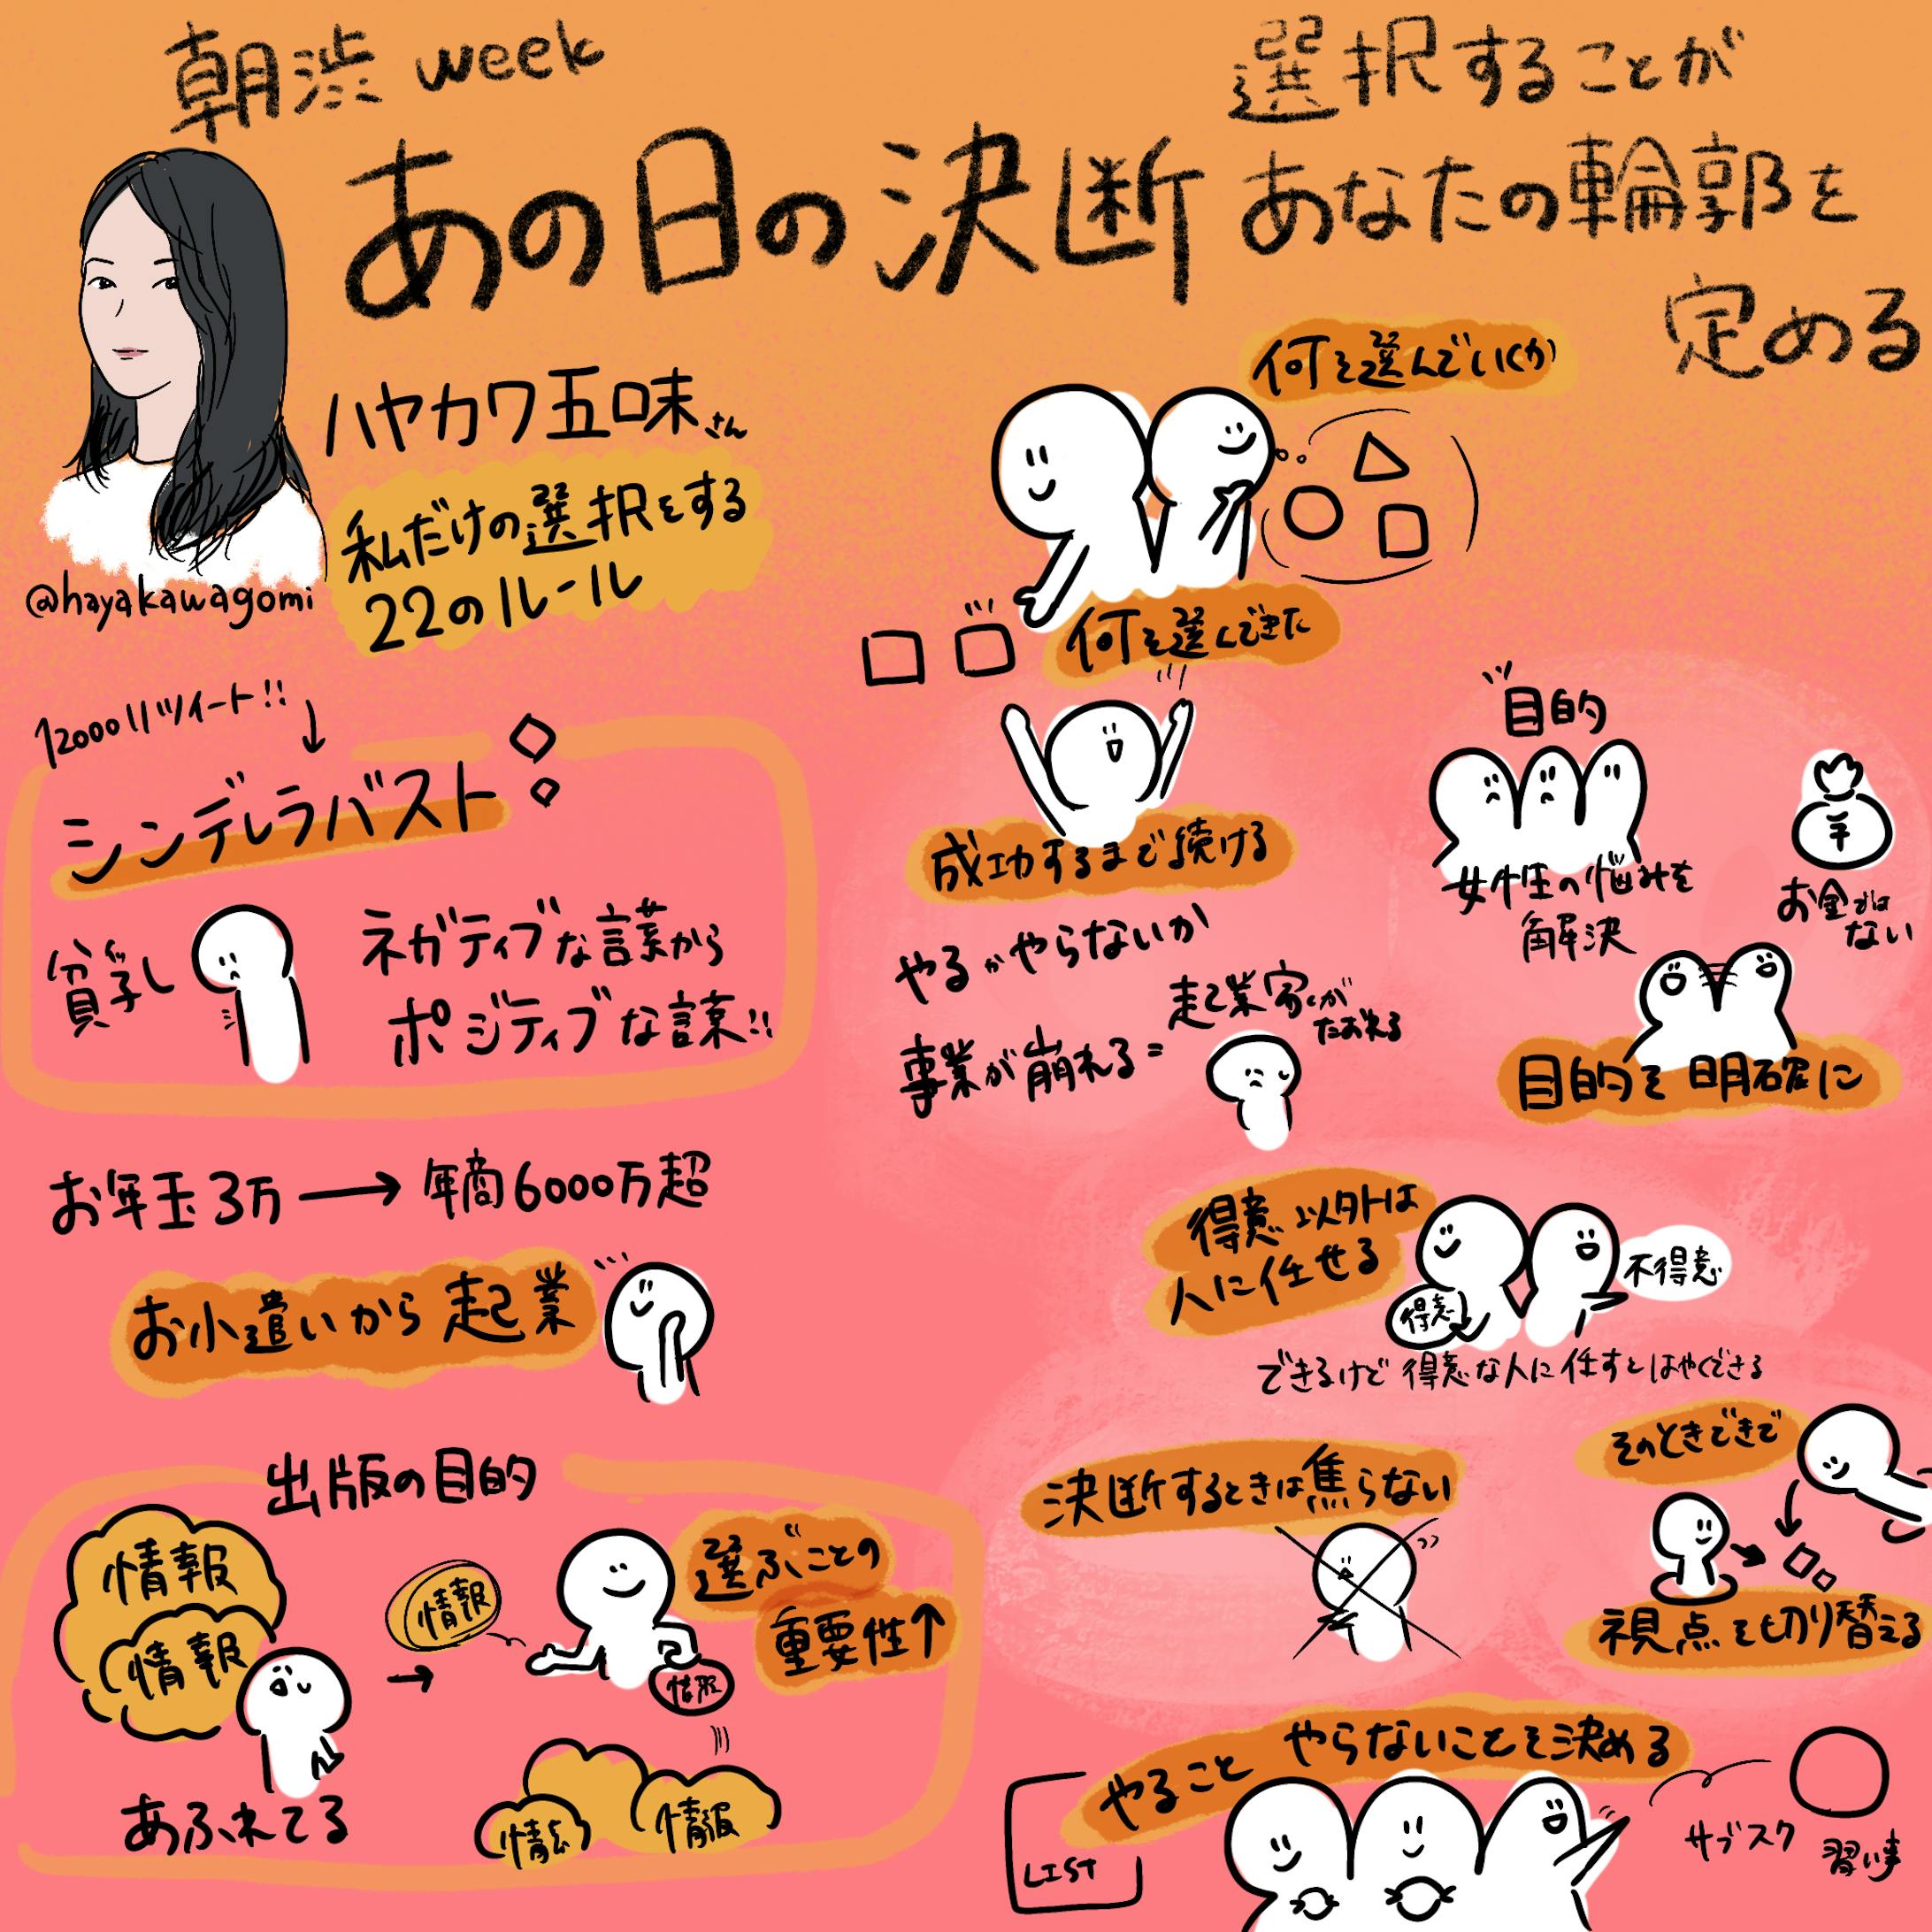 朝渋 week
あの日の決断
選択することが
あなたの輪郭を
定める
ハヤカワ五味さん
私だけの選択をする
22のルール
@hayakawagomi
12000リツイート!!
シンデレラバスト
貧乳
ネガティブな言葉から
ポジティブな言葉!!
お年玉3万 → 年商6000万超
お小遣いから起業
出版の目的
情報
情報
あふれてる
→
情報
情報
選ぶことの
重要性↑
情報
情報
何を選んでいくか
何を選んできた
成功するまで続ける
やるかやらないか
事業が崩れる=
起業家が
たおれる
目的
女性の悩みを
解決
¥
お金では
ない
目的を明確に
得意以外は
人に任せる
得意
不得意
できるけど得意な人に任すとはやくできる
決断するときは焦らない
そのときできで
視点を切り替える
やること やらないことを決める
LIST
サブスク
習い事